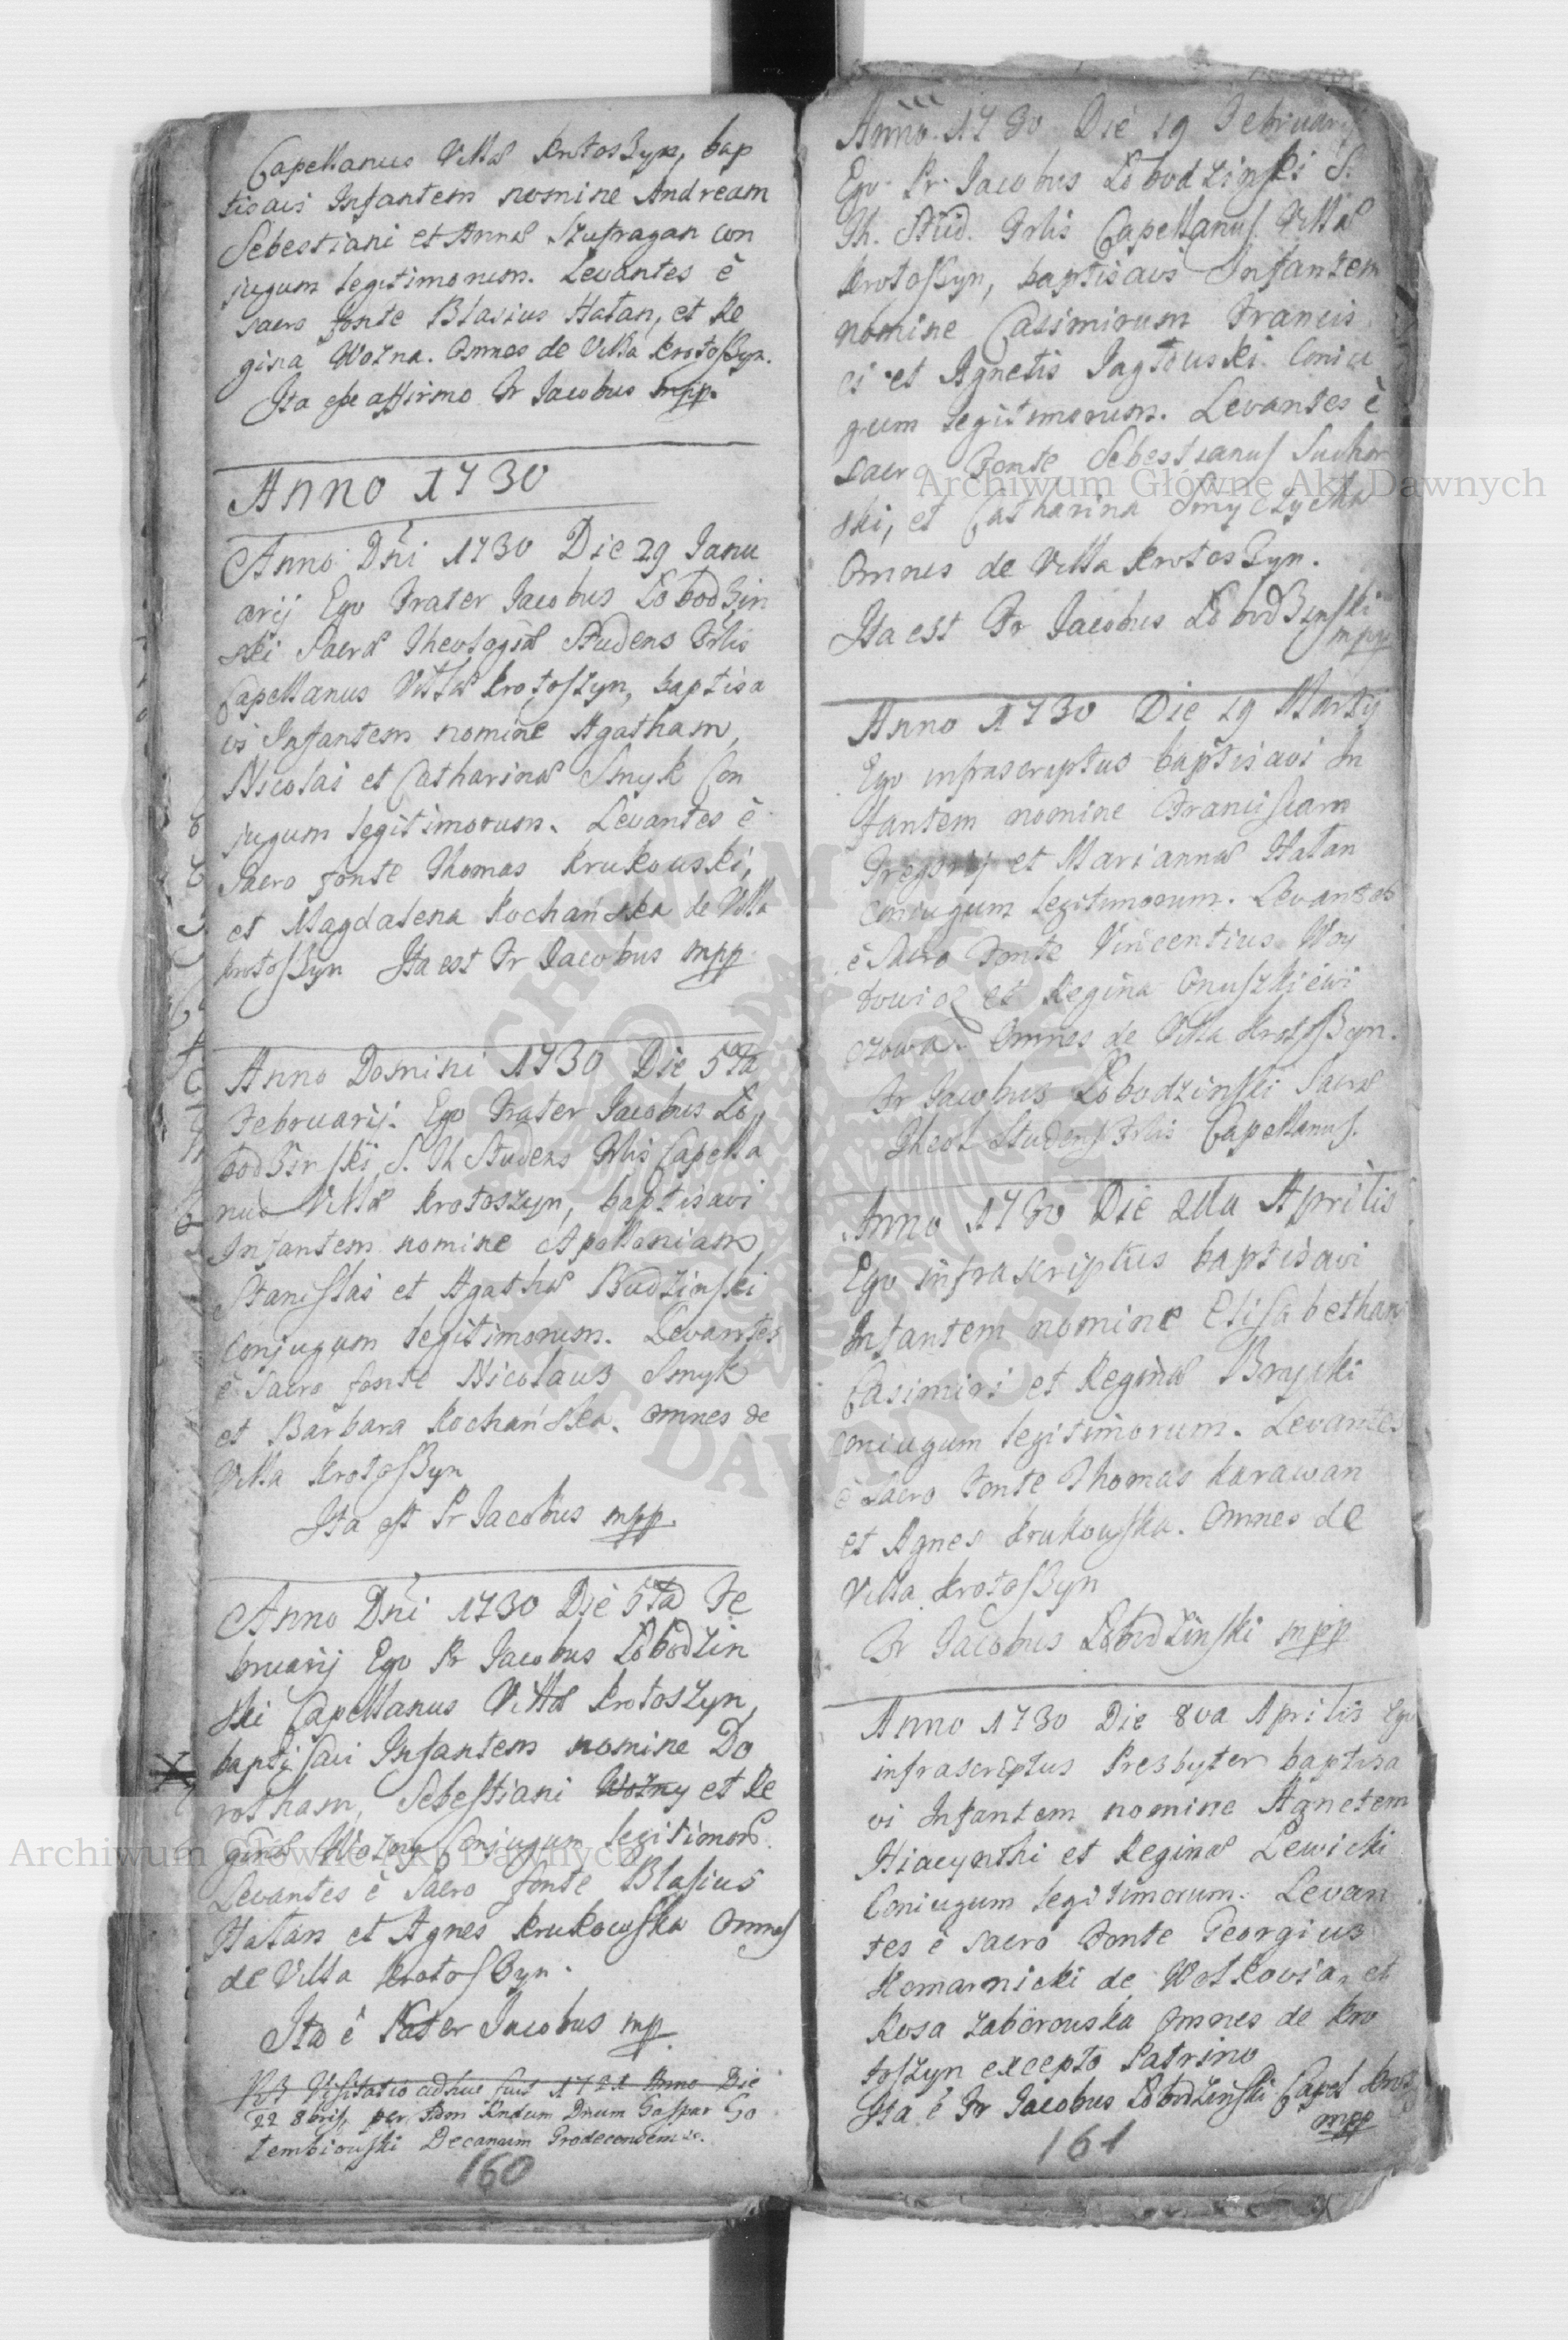 Capellanus Villæ Krotoszyn, bap
tisavi Infantem nomine Andream
Sebestiani et Annæ Szufragan con
jugum legitimorum. Levantes è
sacro fonte Blasius Hatan, et Re
gina Wozna. Omnes de Villa Krotoszyn.
Ita esse affirmo Fr Jacobus mpp.
Anno 1730
Anno Dni 1730 Die 29 Janu
arij Ego Frater Jacobus Łobodzin
ski Sacræ Theologiæ Studens Prlis
Capellanus Villæ Krotoszyn, baptisa
vi Infantem nomine Agatham,
Nicolai et Catharinæ Smyk Con
jugum legitimorum. Levantes è
Sacro fonte Thomas Krukouski,
et Magdalena Kochańska de Villa
Krotoszyn Ita est Fr Jacobus mpp
Anno Domini 1730 Die 5ta
Februarij. Ego Frater Jacobus Ło
bodzinski S. Th Studens Prlis Capella
nus Villæ Krotoszyn, baptisavi
Infantem nomine Apolloniam,
Stanislai et Agathæ Budzinski
Conjugum legitimorum. Levantes
è Sacro fonte Nicolaus Smyk
et Barbara Kochańska. Omnes de
Villa Krotoszyn
Ita est Fr Jacobus mpp.
Anno Dni 1730 Die 5ta Fe
bruarij Ego Fr Jacobus Łobodzin
ski Capellanus Villæ Krotoszyn,
baptisavi Infantem nomine Do
rotham, Sebestiani Wozny et Re
ginæ Wozny Conjugum legitimor.
Levantes è Sacro fonte Blasius
Hatan et Agnes Krukowska Omnes
de Villa Krotoszyn.
Ita è Frater Jacobus mp.
Visitatio 1721 Anno Die
22 8bris per Dnum Gaspar Go
łembiouski Decanum Grodecensem
160
Anno 1730 Die 19 Februarij
Ego Fr. Jacobus Łobodzinski S.
Th. Stud. Prlis Capellanus Villæ
Krotoszyn, baptisavi Infantem
nomine Casimirum Francis
ci et Agnetis Jagłouski Coniu
gum legitimorum. Levantes è
sacro Fonte Sebestianus Suchor
ski, et Catharina Smyczycka
Omnes de Villa Krotoszyn.
Ita est Fr Jacobus Łobodzinski
mpp
Anno 1730 Die 19 Martij
Ego infrascriptus baptisavi In
fantem nomine Franciscam
Gregorij et Mariannæ Hatan
Coniugum legitimorum. Levantes
è Sacro Fonte Vincentius Woy
touicz et Regina Onuszkiewi
czowa. Omnes de Villa Krotoszyn.
Fr Jacobus Łobodzinski Sacræ
Theol Studens Prlis Capellanus.
Anno 1730 Die 2da Aprilis
Ego infrascriptus baptisavi
Infantem nomine Elisabetham
Casimiri et Reginæ
Coniugum legitimorum. Levantes
è Sacro Fonte Thomas Karawan
et Agnes Krukowska. Omnes de
Villa Krotoszyn
Fr Jacobus Łobodzinski mpp
Anno 1730 Die 8va Aprilis Ego
infrascriptus Presbyter baptisa
vi Infantem nomine Agnetem
Hiacynthi et Reginæ Lewicki
Coniugum legitimorum. Levan
tes è sacro Fonte Georgius
Komarnicki de Wołkovia, et
Rosa Zaborouska Omnes de Kro
toszyn excepto Patrino
Ita è Fr Jacobus Łobodzinski Capel Krot
mpp
161
Archiwum Główne Akt Dawnych
Archiwum Główne Akt Dawnych